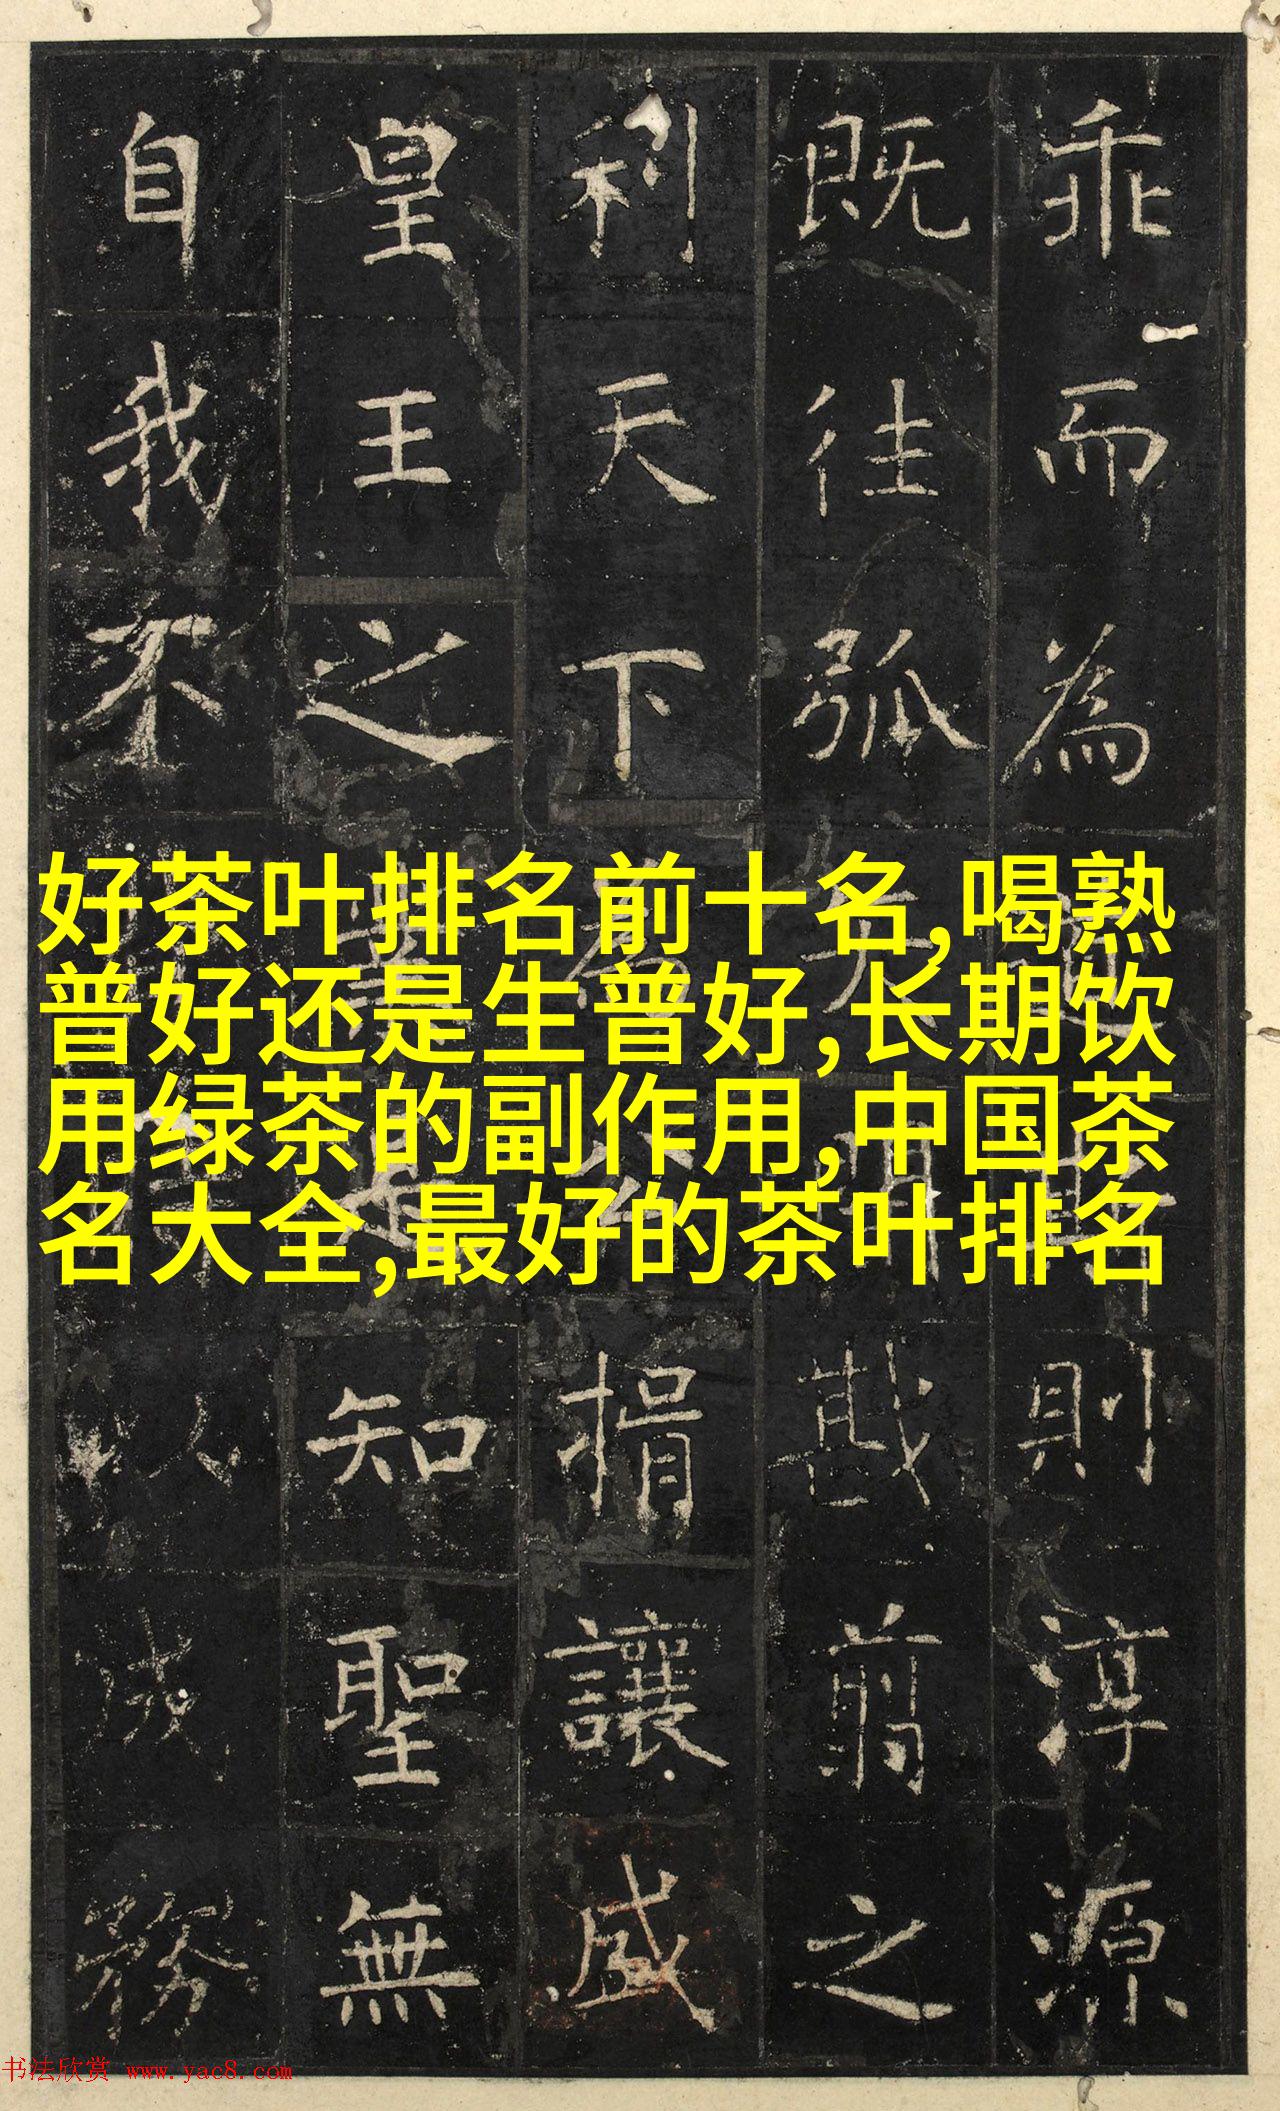 乖而為則淳源
既往弧戡翦之
利天下捐讓盛
皇王之知聖無
自我不以成務
好茶叶排名前十名,喝熟
普好还是生普好,长期饮
用绿茶的副作用,中国茶
名大全,最好的茶叶排名
书法欣赏 www.yac8.com